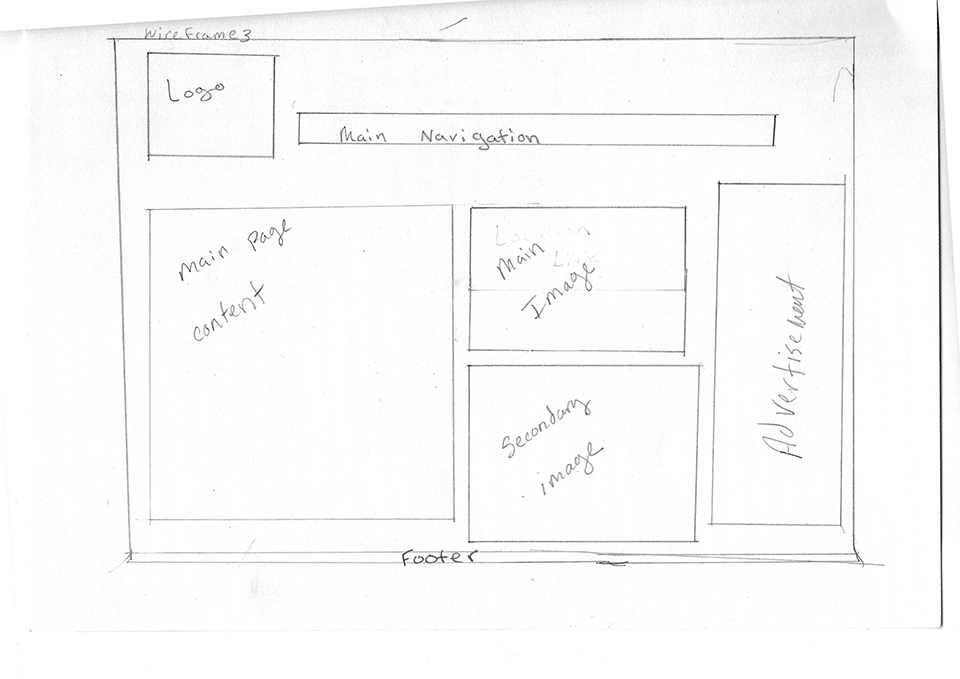 WireFrame3
Logo
Main Navigation
Main Page
content
Location
Main
Link
Image
Secondary
image
Advertisement
Footer